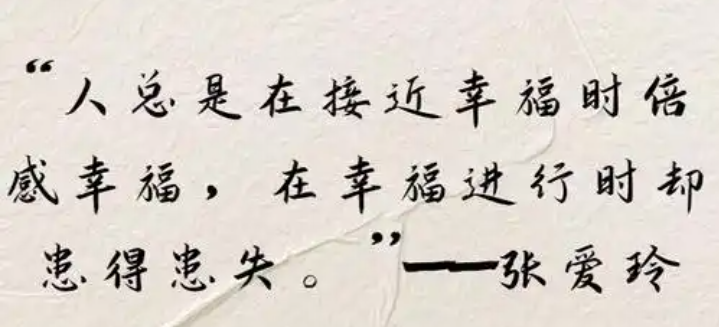 “人总是在接近幸福时倍
感幸福，在幸福进行时却
患得患失。”——张爱玲